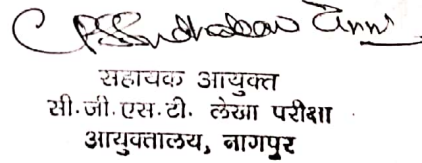 सहायक आयुक्त
सी.जी.एस.टी. लेखा परीक्षा
आयुक्तालय, नागपुर